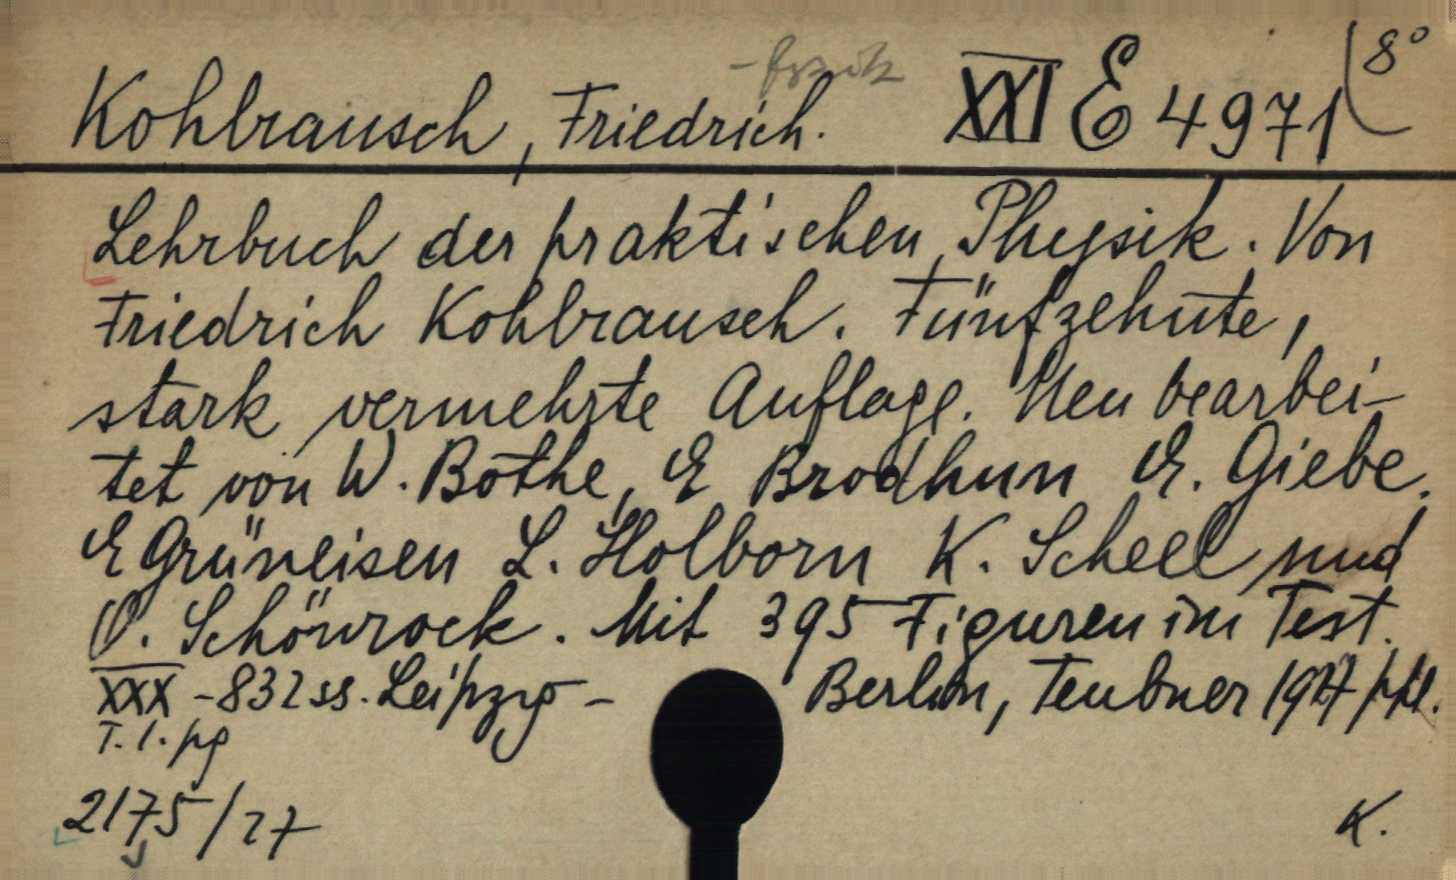 Kohlrausch, Friedrich. XXI E 4971 8°
Lehrbuch der praktischen Physik. Von
Friedrich Kohlrausch. Fünfzehnte,
stark vermehrte Auflage. Neu bearbei-
tet von W. Bothe, E Brodhun E. Giebe.
E Grüneisen L. Holborn K. Scheel und
O. Schönrock. Mit 395 Figuren im Text.
XXX - 832 ss. Leipzig - Berlin, Teubner 1927
T. 1. pg
2175/27
K.